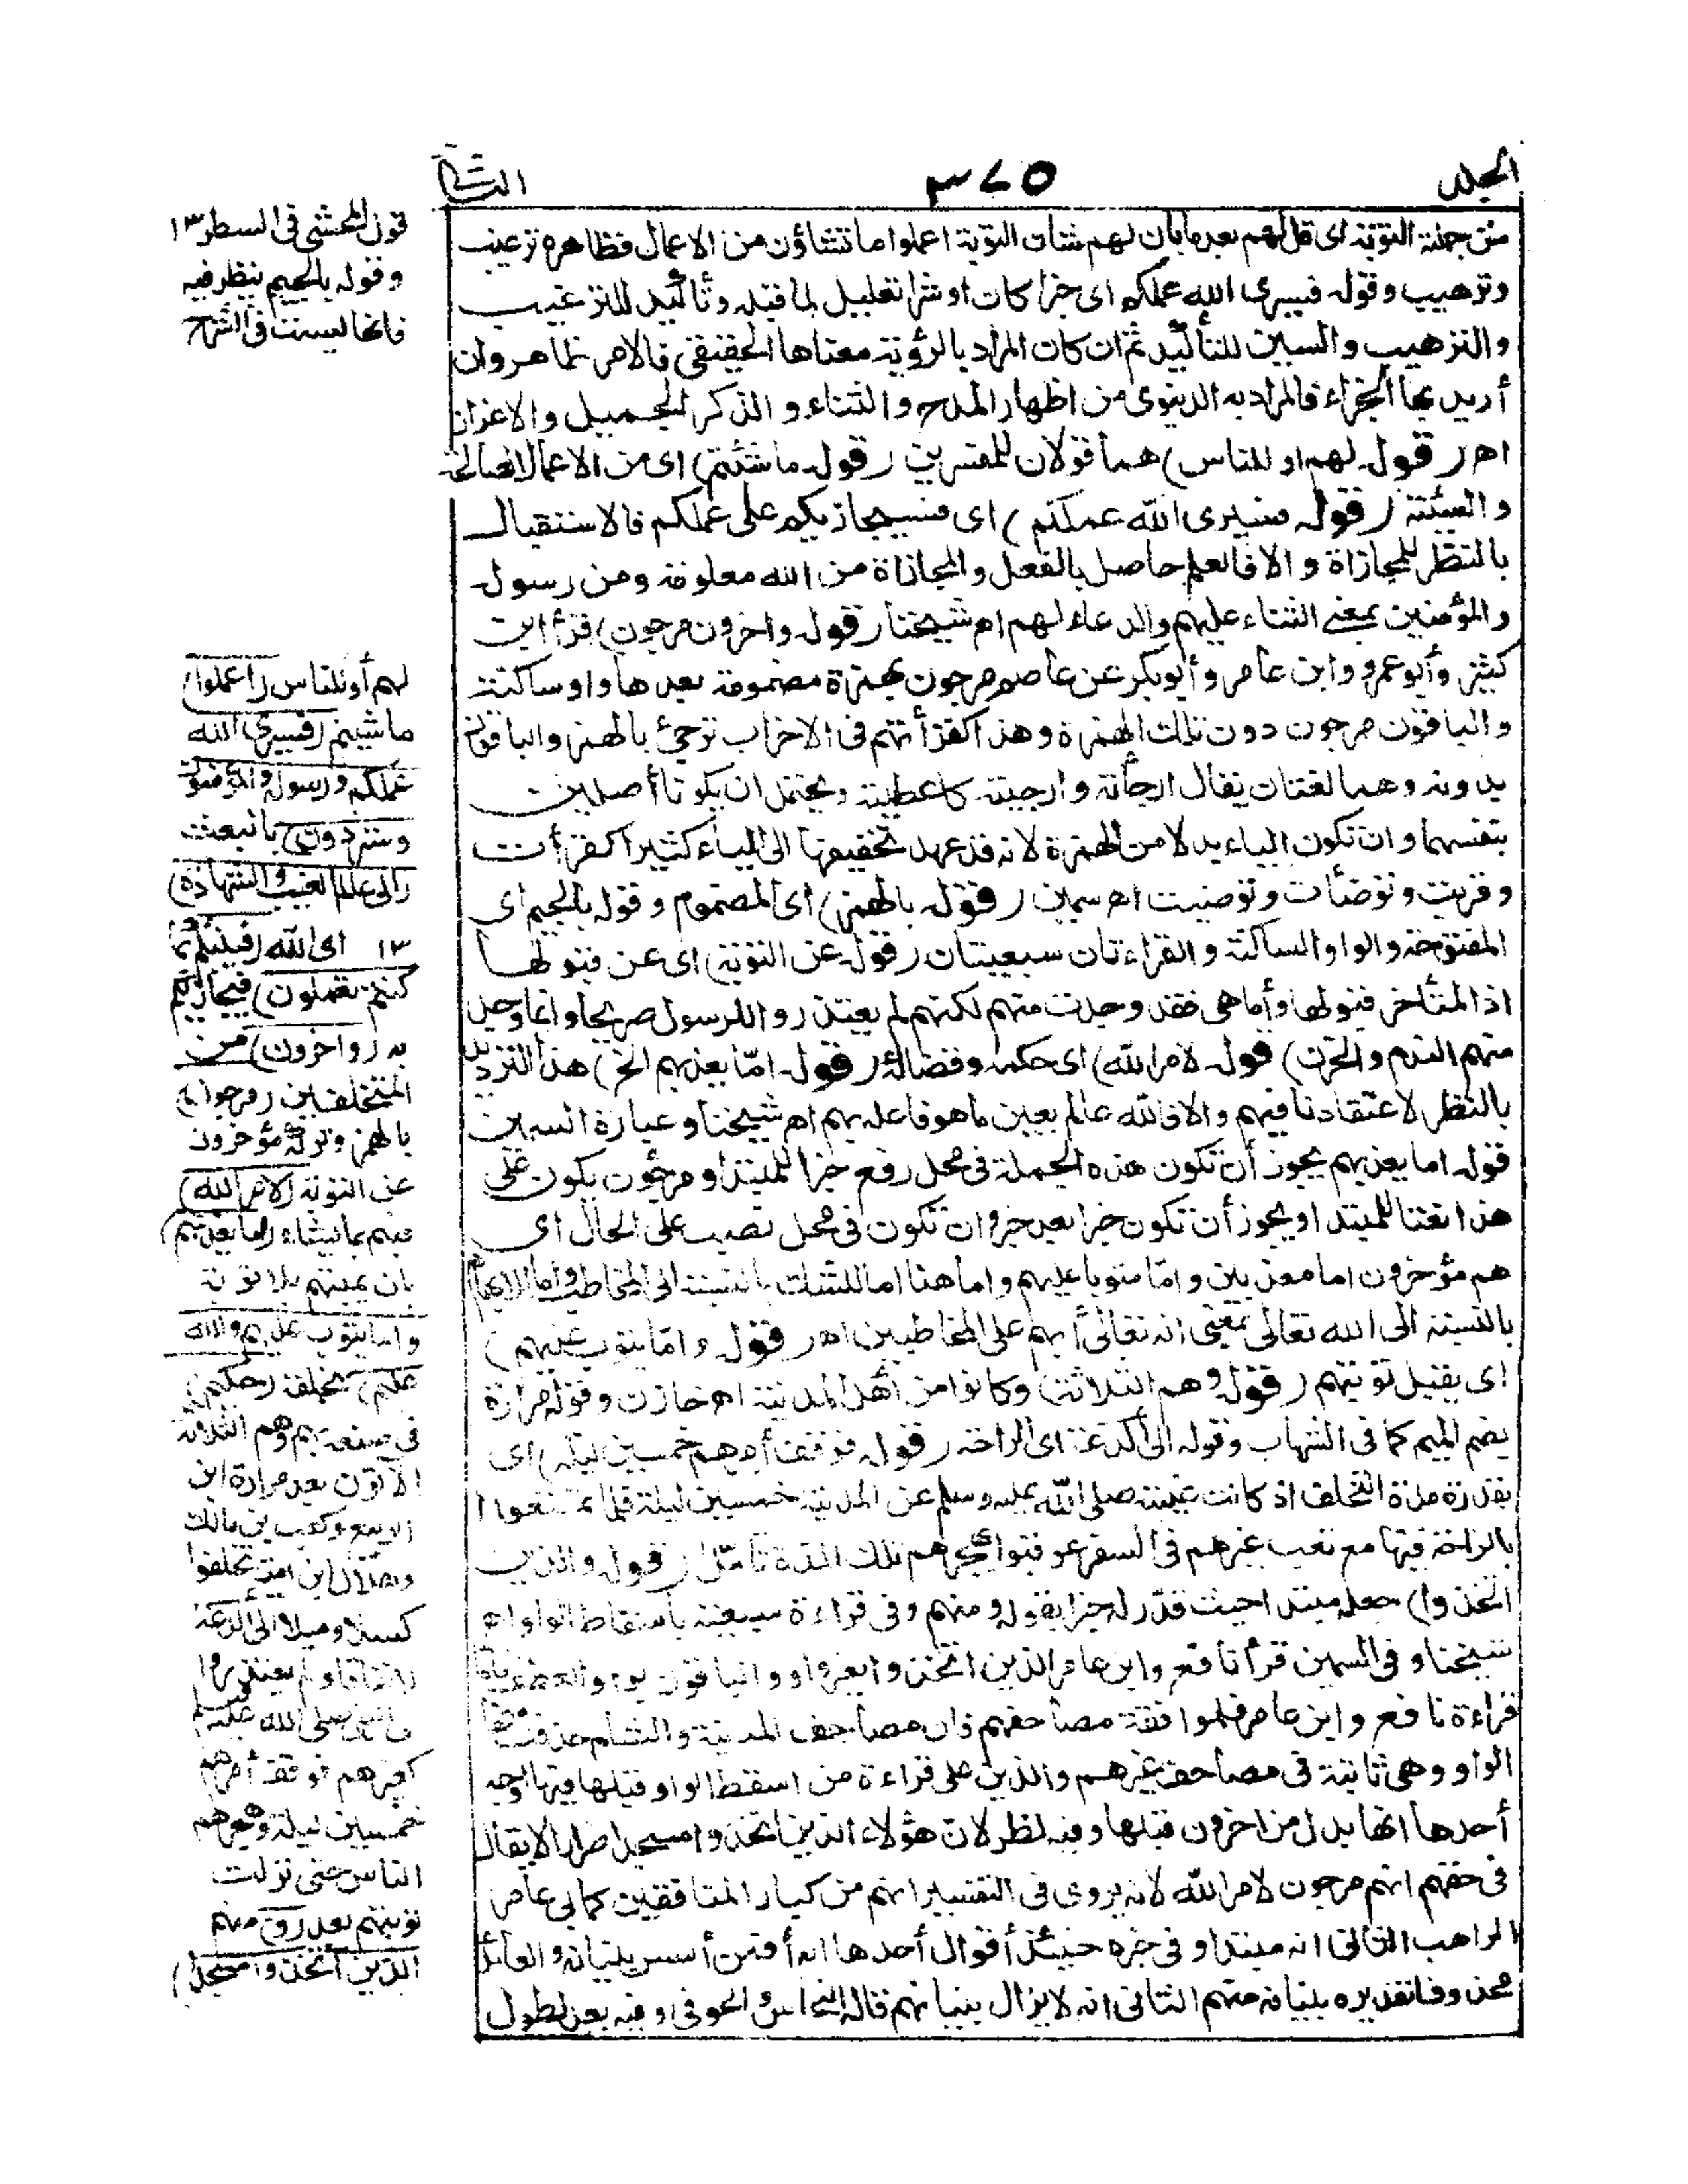 المجلد
٣٧٥
الثانى
من جملة التوبة اى قل لهم بعد ما بان لهم شأن التوبة اعملوا ما تشاؤن من الاعمال فظاهره ترغيب
وترهيب وقوله فسيرى الله عملكم اى خيرا كان او شرا تعليل لما قبله وتأكيد للترغيب
والترهيب والسين للتأكيد ثم ان كان المراد بالرؤية معناها الحقيقى فالامر ظاهر وان
أريد بها الجزاء فالمراد به الدنيوى من اظهار المدح والثناء والذكر الجميل والاعزاز
اهر (قوله لهم او للناس) هما قولان للمفسرين (قوله ما شئتم) اى من الاعمال الصالحة
والسيئة (قوله فسيرى الله عملكم) اى فسيجازيكم على عملكم فالاستقبال
بالنظر للمجازاة والا فالعلم حاصل بالفعل والمجازاة من الله معلومة ومن رسول
والمؤمنين بمعنى الثناء عليهم والدعاء لهم اه شيخنا (قوله واخرون مرجون) قرأ ابن
كثير وأبو عمرو وابن عامر وأبو بكر عن عاصم مرجون بهمزة مضمومة بعدها واو ساكنة
والباقون مرجون دون تلك الهمزة وهذا كقرأتهم فى الاحزاب ترجئ بالهمز والباقون
بدونه وهما لغتان يقال ارجأته وارجيته كاعطيته ويحتمل ان يكونا أصلين
بنفسهما وان تكون الياء بدلا من الهمزة لانه قد عهد تخفيفها الى الياء كثيرا كقرأت
وقريت وتوضأت وتوضيت اه سمين (قوله بالهمز) أى المضموم وقوله بالجيم اى
المفتوحة والواو الساكنة والقراءتان سبعيتان (قوله عن التوبة) اى عن قبولها
اذ المتأخر قبولها وأما هى فقد وجدت منهم لكنهم لم يعتذروا للرسول صريحا وانما وجد
منهم الندم والحزن) قوله لامر الله) اى حكمه وقضائه (قوله اما يعذبهم الخ) هذا الترديد
بالنظر لاعتقادنا فيهم والا فالله عالم بعين ما هو فاعله بهم اه شيخنا وعبارة السمين
قوله اما يعذبهم يجوز أن تكون هذه الجملة فى محل رفع خبرا للمبتدا ومرجؤن يكون على
هذا نعتا للمبتدا ويجوز أن تكون خبرا بعد خبر وان تكون فى محل نصب على الحال اى
هم مؤخرون اما معذبين واما متوبا عليهم واما هنا اما للشك بالنسبة الى المخاطب واما للابهام
بالنسبة الى الله تعالى بمعنى انه تعالى أبهم على المخاطبين اهر (قوله واما يتوب عليهم)
اى يقبل توبتهم (قوله وهم الثلاثة) وكانوا من أهل المدينة اه خازن وقوله مرارة
بضم الميم كما فى الشهاب وقوله الى الدعة اى الراحة (قوله فوقف أمرهم خمسين ليلة) اى
بقدر مدة التخلف اذ كانت غيبته صلى الله عليه وسلم عن المدينة خمسين ليلة فلما تمتعوا
بالراحة فيها مع تعب غيرهم فى السفر عوقبوا بهجرهم تلك المدة تأمل (قوله والذين
اتخذوا) جعله مبتدا حيث قدر له خبرا بقوله ومنهم وفى قراءة سبعية باسقاط الواو اه
شيخنا وفى السمين قرأ نافع وابن عامر الذين اتخذوا بغير واو والباقون بواو العطف فاما
قراءة نافع وابن عامر فلموافقة مصاحفهم فان مصاحف المدينة والشام حذفت منها
الواو وهى ثابتة فى مصاحف غيرهم والذين على قراءة من اسقط الواو قبلها فيها اوجه
أحدها انها بدل من اخرون قبلها وفيه نظر لان هؤلاء الذين اتخذوا مسجدا ضرارا لا يقال
فى حقهم انهم مرجون لامر الله لانه يروى فى التفسير انهم من كبار المنافقين كابى عامر
الراهب الثانى انه مبتدا وفى خبره حينئذ أقوال أحدها انه أفمن أسس بنيانه والعائد
محذوف تقديره بنيانه منهم الثانى انه لا يزال بنيانهم قاله النحاس والحوفى وفيه بعد لطول
قول المحشى فى السطر ١٣
وقوله بالجيم ينظر فيه
فانها ليست فى الشرح
لهم أو للناس (اعملوا)
ما شئتم (فسيرى الله
عملكم ورسوله والمؤمنون
وستردون) بالبعث
(الى عالم الغيب والشهادة)
١٣ اى الله (فينبئكم بما
كنتم تعملون) فيجازيكم
به (واخرون) من
المتخلفين (مرجون)
بالهمز وتركه مؤخرون
عن التوبة (لامر الله)
فيهم بما يشاء (اما يعذبهم)
بان يميتهم بلا توبة
واما يتوب عليهم والله
عليم) بخلقه (حكيم)
فى صنعه بهم وهم الثلاثة
الآتون بعد مرارة ابن
الربيع وكعب بن مالك
وهلال ابن امية تخلفوا
كسلا وميلا الى الدعة
لا نفاقا ولم يعتذروا
الى النبى صلى الله عليه وسلم
كغيرهم فوقف أمرهم
خمسين ليلة وهجرهم
الناس حتى نزلت
توبتهم بعد (و) منهم
(الذين اتخذوا مسجدا)